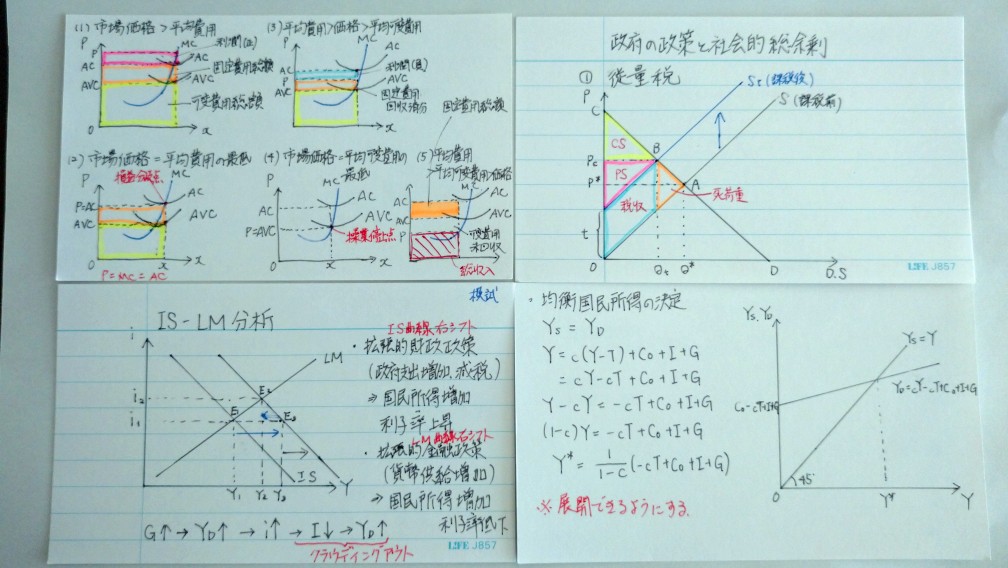 (1) 市場価格 > 平均費用
P
P
AC
AVC
0
x
MC
利潤(正)
AC
固定費用総額
AVC
可変費用総額
(3) 平均費用>価格>平均可変費用
P
AC
P
AVC
0
x
MC
AC
利潤(負)
AVC
固定費用
回収部分
(2) 市場価格 = 平均費用の最低
損益分岐点
P
P=AC
AVC
0
x
x
MC
AC
AVC
P = MC = AC
(4) 市場価格=平均可変費用の
最低
P
AC
P=AVC
0
x
x
MC
AC
AVC
操業停止点
(5) 平均費用
>平均可変費用>価格
固定費用総額
P
AC
AVC
P
0
x
MC
AC
AVC
可変費用
未回収
総収入
政府の政策と社会的総余剰
① 従量税
P
C
Pc
P*
t
0
St (課税後)
S (課税前)
CS
PS
税収
B
A
死荷重
Qt
Q*
D
D.S
LIFE J857
模試
IS-LM分析
i
i2
i1
LM
E1
E2
E3
IS
Y1
Y2
Y3
Y
IS曲線右シフト
・拡張的財政政策
(政府支出増加、減税)
⇒ 国民所得増加
利子率上昇
LM曲線右シフト
・拡張的金融政策
(貨幣供給増加)
⇒ 国民所得増加
利子率低下
G↑ → YD↑ → i↑ → I↓ → YD↑
クラウディングアウト
LIFE J857
・均衡国民所得の決定
YS = YD
Y = c(Y-T)+C0+I+G
= cY-cT+C0+I+G
Y-cY = -cT+C0+I+G
(1-c)Y = -cT+C0+I+G
Y* = 1/1-c (-cT+C0+I+G)
※ 展開できるようにする。
YS.YD
YS=Y
YD=cY-cT+C0+I+G
C0-cT+I+G
0
45°
Y*
Y